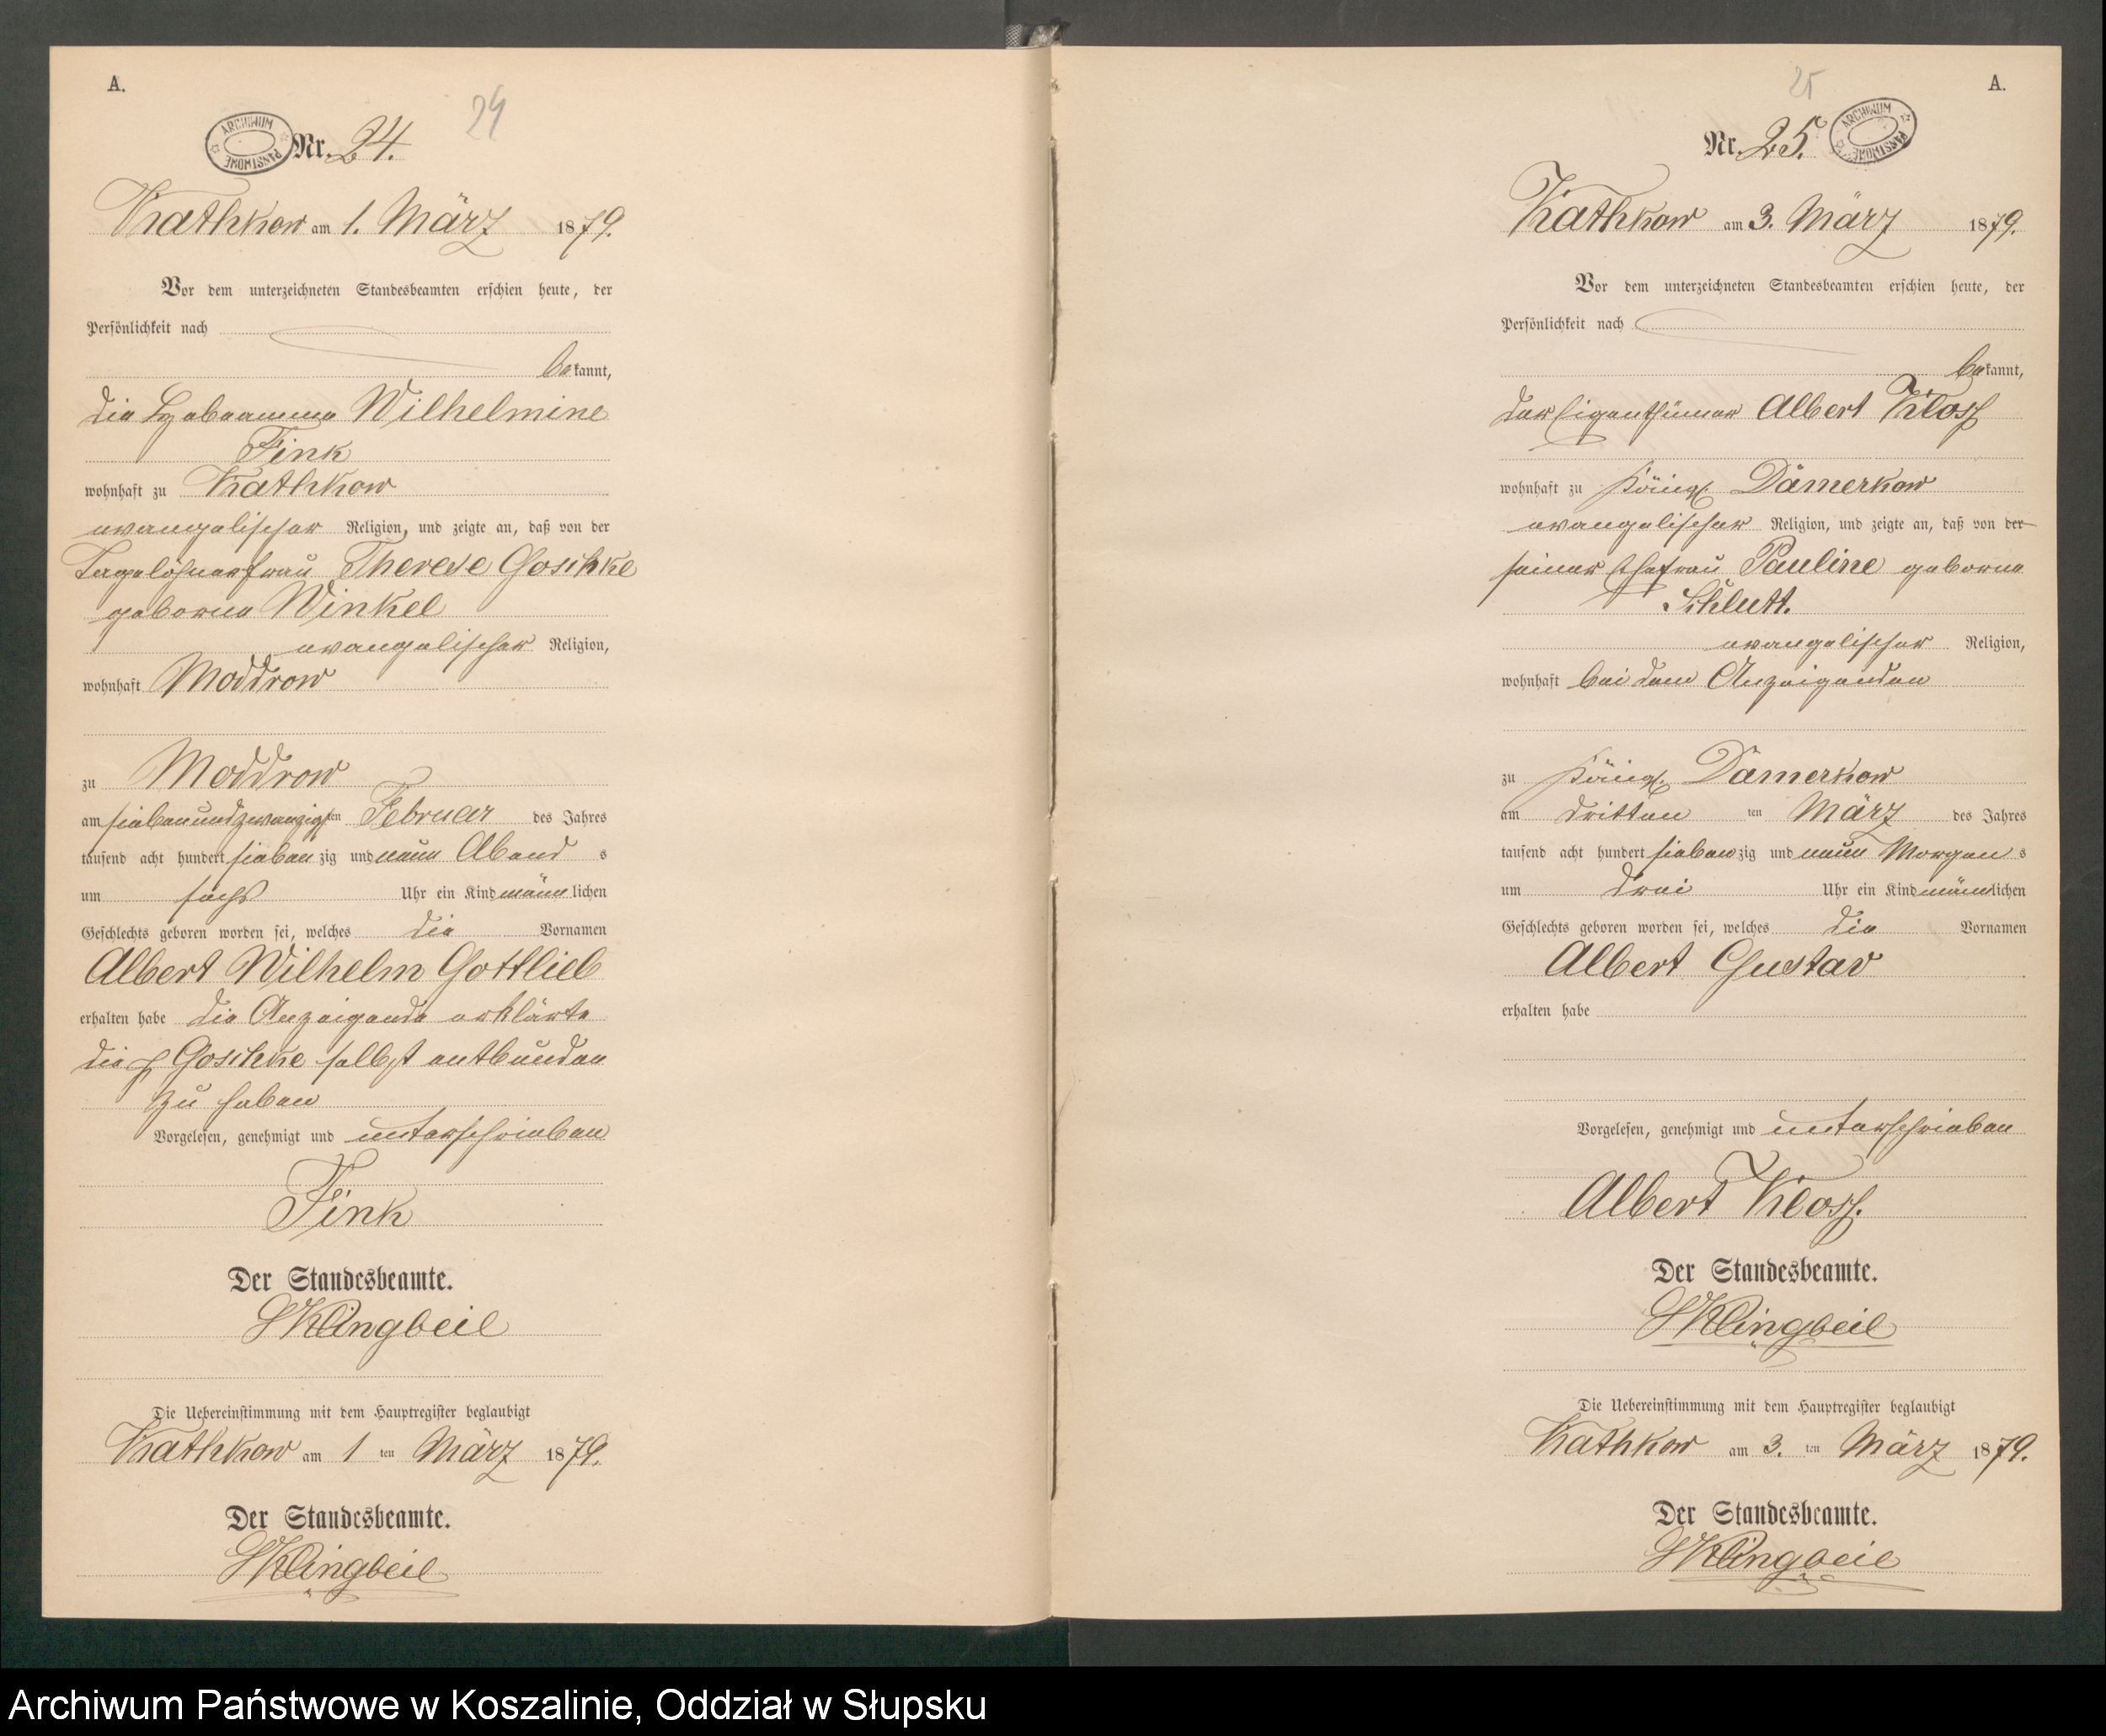 A.
24
Nr. 24.
ARCHIWUM PAŃSTWOWE
Kathkow am 1. März 1879.
Vor dem unterzeichneten Standesbeamten erschien heute, der
Persönlichkeit nach
bekannt,
die Hebeamme Wilhelmine
Fink
wohnhaft zu Kathkow
evangelischer Religion, und zeigte an, daß von der
Tagelöhnerfrau Therese Goschke
geborne Winkel
evangelischer Religion,
wohnhaft Moddrow
zu Moddrow
am siebenundzwanzigsten Februar des Jahres
tausend acht hundert siebenzig und neun Abend s
um sechs Uhr ein Kind männlichen
Geschlechts geboren worden sei, welches die Vornamen
Albert Wilhelm Gottlieb
erhalten habe die Anzeigende erklärte
die p Goschke selbst entbunden
zu haben
Vorgelesen, genehmigt und unterschrieben
Fink
Der Standesbeamte.
Klingbeil
Die Uebereinstimmung mit dem Hauptregister beglaubigt
Kathkow am 1 ten März 1879.
Der Standesbeamte.
Klingbeil
25
A.
Nr. 25.
ARCHIWUM PAŃSTWOWE
Kathkow am 3. März 1879.
Vor dem unterzeichneten Standesbeamten erschien heute, der
Persönlichkeit nach
bekannt,
der Eigenthümer Albert Kloss
wohnhaft zu Königl. Dämerkow
evangelischer Religion, und zeigte an, daß von der
seiner Ehefrau Pauline geborne
Schlutt.
evangelischer Religion,
wohnhaft bei dem Anzeigenden
zu Königl. Dämerkow
am dritten ten März des Jahres
tausend acht hundert siebenzig und neun Morgen s
um drei Uhr ein Kind männlichen
Geschlechts geboren worden sei, welches die Vornamen
Albert Gustav
erhalten habe
Vorgelesen, genehmigt und unterschrieben
Albert Kloss.
Der Standesbeamte.
Klingbeil
Die Uebereinstimmung mit dem Hauptregister beglaubigt
Kathkow am 3. ten März 1879.
Der Standesbeamte.
Klingbeil
Archiwum Państwowe w Koszalinie, Oddział w Słupsku